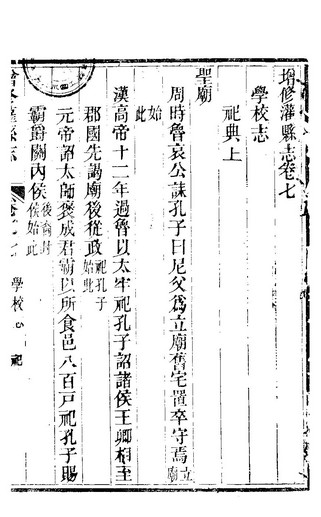 增修灌縣志卷七
學校志
祀典上
聖廟
周時魯哀公誄孔子曰尼父爲立廟舊宅置卒守焉立廟
始此
漢高帝十二年過魯以太牢祀孔子詔諸侯王卿相至
郡國先謁廟後從政祀孔子始此
元帝詔太師褒成君霸以所食邑八百戶祀孔子賜
霸爵關內侯後裔封侯始此
學校
祀